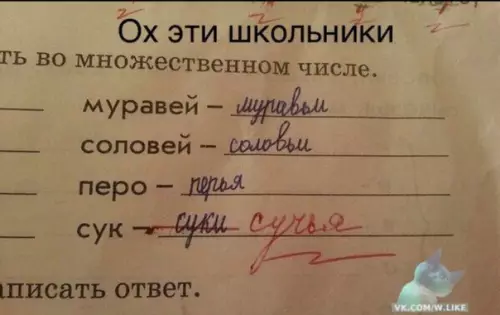 Ох эти школьники
ть во множественном числе.
муравей – муравьи
соловей – соловьи
перо – перья
сук – суки сучья
аписать ответ.
VK.COM/W.LIKE